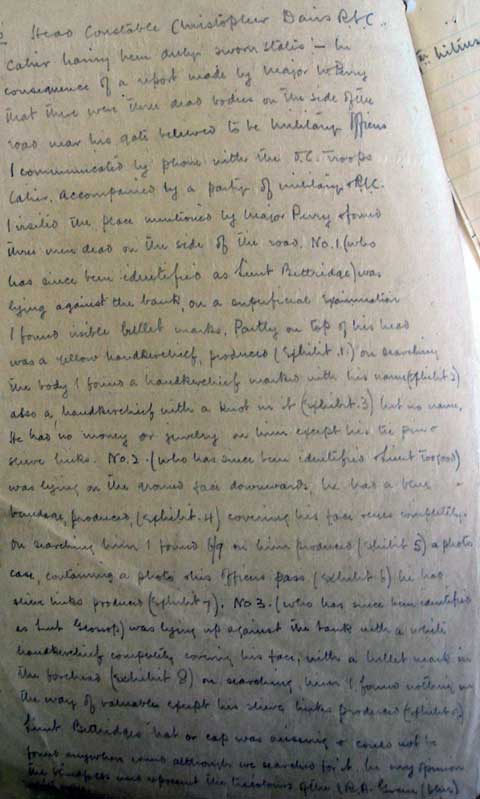 Head Constable Christopher Davis R.I.C.
Cahir having been duly sworn states :- in
consequence of a report made by Major W. Perry
that there were three dead bodies on the side of the
road near his gate believed to be military officers
I communicated by phone with the O.C. Troops
Cahir. Accompanied by a party of military & R.I.C.
I visited the place mentioned by Major Perry & found
three men dead on the side of the road. No. 1. (who
has since been identified as Lieut Bettridge) was
lying against the bank, on a superficial examination
I found visible bullet marks. Partly on top of his head
was a yellow handkerchief, produced (Exhibit. 1) on searching
the body I found a handkerchief marked with his name (Exhibit 2)
also a handkerchief with a knot in it (Exhibit. 3) but no name.
He had no money or jewelry on him except his tie pin &
sleeve links. No. 2. (who has since been identified Lieut Toogood)
was lying on the ground face downwards, he had a
bandage, produced, (Exhibit. 4) covering his face completely.
on searching him I found on him produced (Exhibit 5) a photo
case, containing a photo & his Officers pass (Exhibit 6) he had
sleeve links produced (Exhibit 7). No 3. (who has since been identified
as Lieut Glossop) was lying up against the bank with a white
handkerchief completely covering his face, with a bullet mark in
the forehead (Exhibit 8) on searching him I found nothing in
the way of valuables except his sleeve links produced (Exhibit
Lieut Bettridges hat or cap was missing & could not be
found anywhere round although we searched for it. In my opinion
the bandages represent the tricolours of the I.R.A. Green